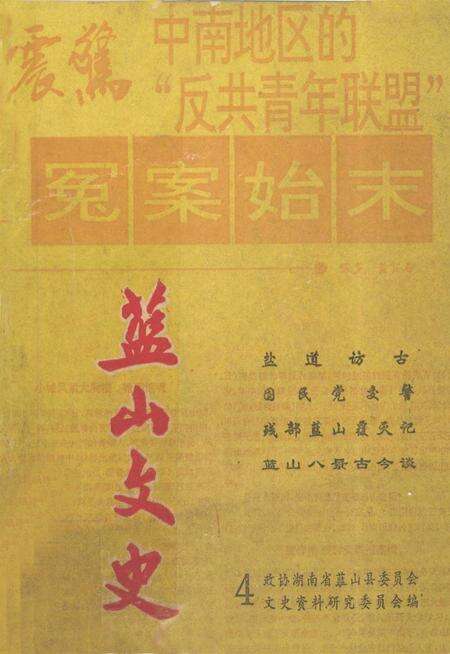 震惊中南地区的
“反共青年联盟”
冤案始末
蓝山文史
盐道访古
国民党交警
残部蓝山覆灭记
蓝山八景古今谈
4
政协湖南省蓝山县委员会
文史资料研究委员会编